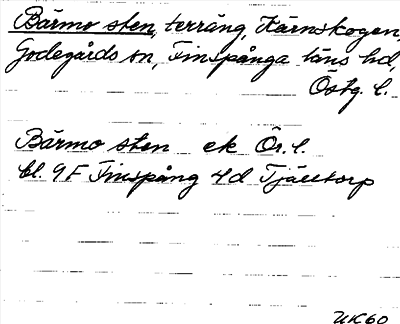 Bärmo sten, terräng, Kärnskogen,
Godegårds sn, Finspånga läns hd,
Östg. l.
Bärmo sten ek Ör. l.
bl. 9F Finspång 4d Tjälltorp
UK60